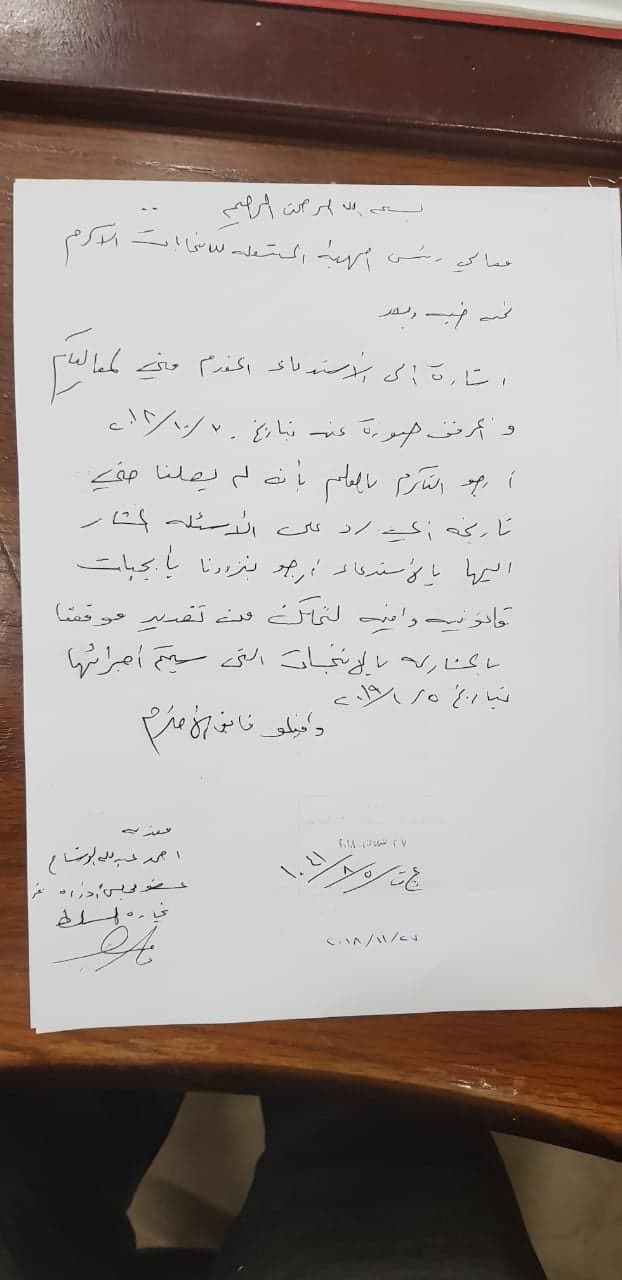 بسم الله الرحمن الرحيم
معالي رئيس الهيئة المستقله للانتخابات الاكرم
تحيه طيبه وبعد
اشارة الى الأستدعاء المقدم مني لمعاليكم
و المرفق صورة عنه بتاريخ
أرجو التكرم بالعلم بأنه لم يصلنا حتى
تاريخه أي رد على الأسئله المشار
اليها بالأستدعاء أرجو تزودنا بأجابات
قانونيه وافيه لنتمكن من تقدير موقفنا
بالمشاركه بالانتخابات التي سيتم أجرائها
بتاريخ
واقبلو فائق الأحترام
مقدمه
احمد عبدالله الوشاح
عضو مجلس أدارة
تجارة السلط
٢٠١٨/١١/٢٥